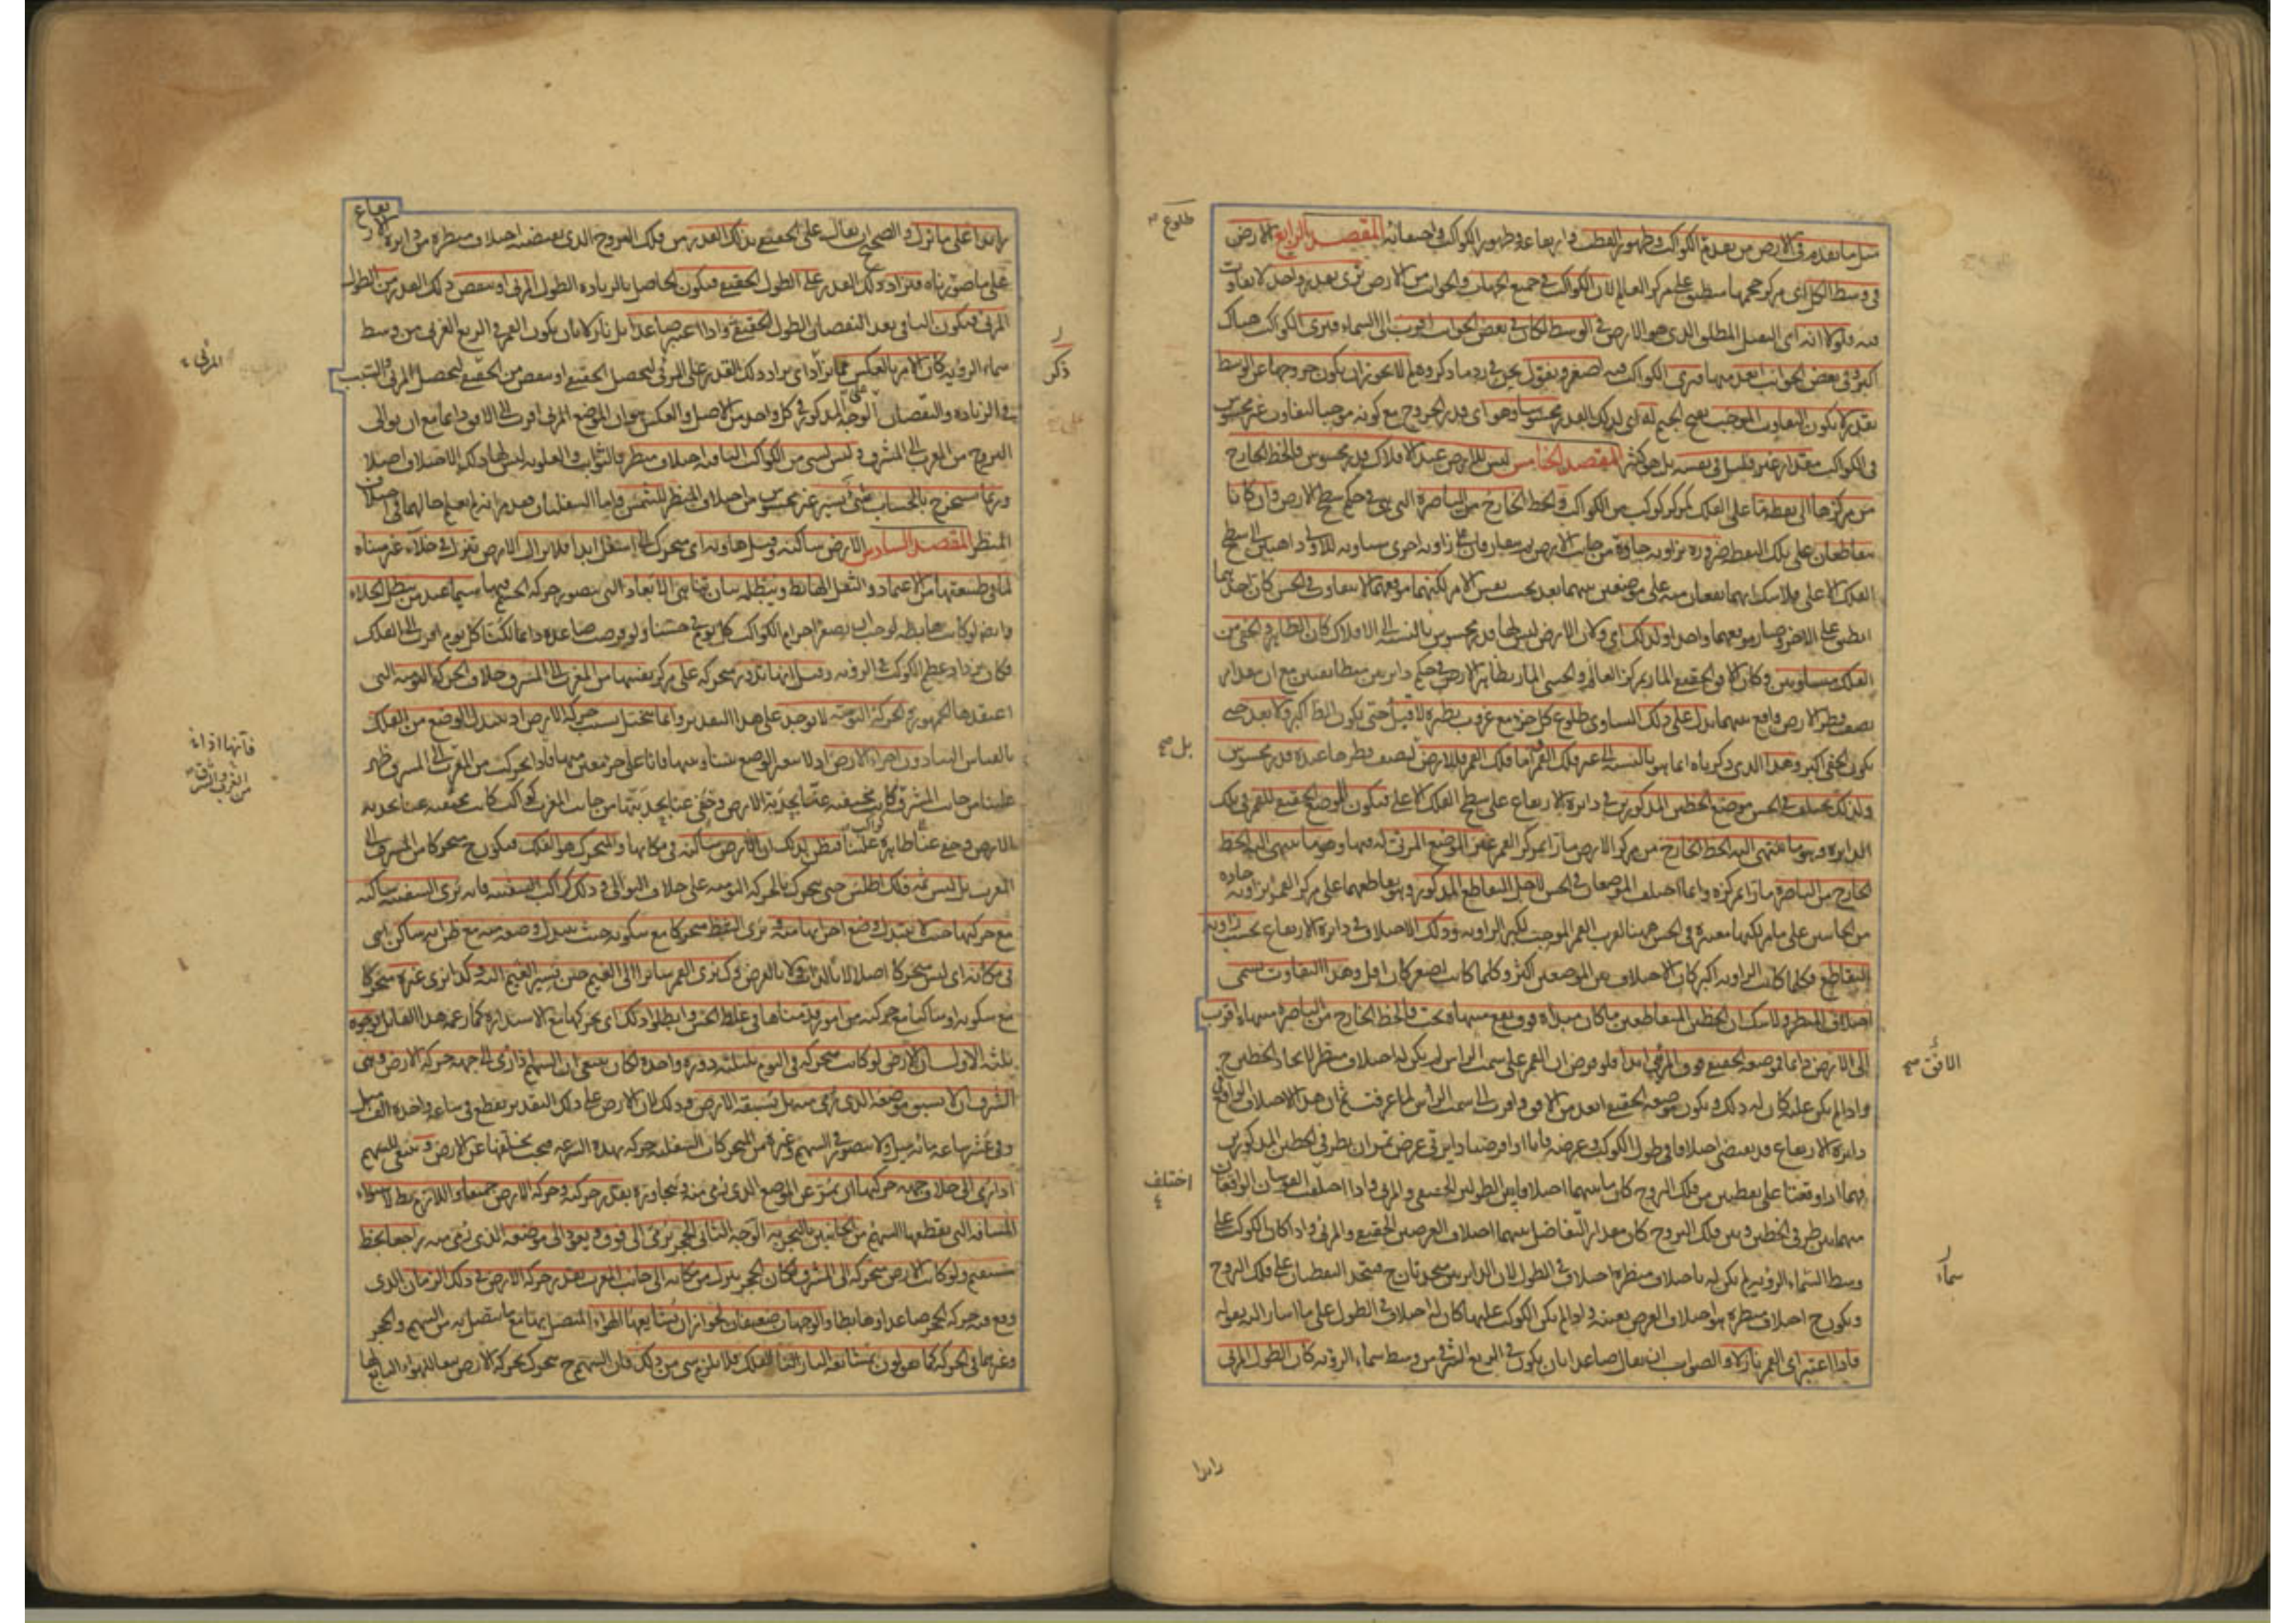 مثل ما تقدم في الارض من تقدم الكواكب وظهور القطب وارتفاعه وظهور الكواكب واختفائه المقصد الرابع الارض
في وسط الكل اى مركز حجمها منطبق على مركز العالم لان الكواكب في جميع الجهات والجوانب من الارض ترى بقدر واحد لا تفاوت
فيه فلولا انه اى الثقيل المطلق الذى هو الارض في الوسط لكان في بعض الجوانب اقرب الى السماء فيرى الكواكب هناك
اكبر وفي بعض الجوانب ابعد منها فيرى الكواكب فيه اصغر ونقول نحن في رد ما ذكروه لم لا يجوز ان يكون خروجها عن الوسط
بقدر لا يكون التفاوت الموجب بفتح الجيم له اى لذلك القدر محسوسا وهو اى قدر الخروج مع كونه موجبا لتفاوت غير محسوس
في الكواكب مقدار غير قليل في نفسه بل هو كثير المقصد الخامس ليس للارض عند الافلاك قدر محسوس فالخط الخارج
من مركزها الى نقطة ما على الفلك كمركز كوكب من الكواكب والخط الخارج من الباصرة التى هى في حكم سطح الارض وان كانا
متقاطعان على تلك النقطة ضرورة بزاوية حادة من جانب الارض ثم يفارقان على زاوية اخرى مساوية للاولى ذاهبين الى سطح
الفلك الاعلى فلا شك انهما يقعان منه على موضعين بينهما بعد بحسب نفس الامر لكنهما موقعهما لا يتفاوت في الحس كأن احدهما
انطبق على الاخر وصار موقعهما واحدا ولذلك اى ولان الارض ليس لها قدر محسوس بالنسبة الى الافلاك كان الظاهر والخفى من
الفلك متساويين وكان الافق الحقيقى المار بمركز العالم والحسى المار بظاهر الارض في حكم دائرتين متطابقتين مع ان مقدار
نصف قطر الارض واقع بينهما يدل على ذلك التساوى طلوع كل جزء مع غروب نظيره لا قبل حتى يكون الظاهر اكبر ولا بعد حتى
يكون الخفى اكبر وهذا الذى ذكرناه انما هو بالنسبة الى غير فلك القمر اما فلك القمر فللارض لنصف قطرها عنده قدر محسوس
ولذلك يختلف في الحس موضع الخطين المذكورين في دائرة الارتفاع على سطح الفلك الاعلى فيكون الموضع الحقيقى للقمر في تلك
الدائرة وهو ما ينتهى اليه الخط الخارج من مركز الارض مارا بمركز القمر غير الموضع المرئى له فيها وهو ما ينتهى اليه الخط
الخارج من الباصرة مارا بمركزه وانما اختلف الموضعان في الحس لاجل التقاطع المذكور وهو تقاطعهما على مركز القمر بزاوية حادة
من الجانبين على ما مر لكنها معتبرة في الحس ههنا لقرب القمر الموجب لكبر الزاوية وذلك الاختلاف في دائرة الارتفاع بحسب زاوية
التقاطع فكلما كانت الزاوية اكبر كان الاختلاف بين الموضعين اكثر وكلما كانت اصغر كان اقل وهذا التفاوت يسمى
اختلاف المنظر ولا شك ان الخطين المتقاطعين ما كان مبدأه فوق يقع منتهاه تحت والخط الخارج من الباصرة منتهاه اقرب
الى الارض دائما فموضعه الحقيقى فوق المرئى ابدا فلو فرض ان القمر على سمت الرأس لم يكن له اختلاف منظر لاتحاد الخطين ح
واذا لم يكن عليه كان له ذلك ويكون موضعه الحقيقى ابعد من الافق واقرب الى سمت الرأس لما عرفت ثم ان هذا الاختلاف الواقع في
دائرة الارتفاع قد يقتضى اختلافا في طول الكوكب وعرضه فانا اذا فرضنا دائرتى عرض تمران بطرفى الخطين المذكورين
فهما اذا وقعتا على نقطتين من فلك البروج كان ما بينهما اختلافا بين الطولين الحقيقى والمرئى واذا اختلف القوسان الواقعتان
منهما بين طرفى الخطين وبين فلك البروج كان مقدار التفاضل بينهما اختلاف العرضين الحقيقى والمرئى واذا كان الكوكب على
وسط السماء الرؤية لم يكن له باختلاف منظره اختلاف في الطول لان الدائرتين تتحدان ح فيتحد النقطتان على فلك البروج
ويكون ح اختلاف منظره هو اختلاف العرض بعينه واذا لم يكن الكوكب عليها كان له اختلاف في الطول على ما اشار اليه بقوله
فاذا اعتبر اى القمر نازلا والصواب ان يقال صاعدا بان يكون في الربع الشرقى من وسط سماء الرؤية كان الطول المرئى
طلوع
بل صح
الافق صح
اختلف
سماء
زائدا
زائدا على ما نزل والصحيح ان يقال على الحقيقى بذلك القدر من فلك البروج الذى يقتضيه اختلاف منظره من دائرة الارتفاع
على ما صورناه فيزاد ذلك القدر على الطول الحقيقى فيكون الحاصل بالزيادة الطول المرئى او ينقص ذلك القدر من الطول
المرئى فيكون الباقى بعد النقصان الطول الحقيقى واذا اعتبر صاعدا بل نازلا بان يكون القمر في الربع الغربى من وسط
سماء الرؤية كان الامر بالعكس مما نزل اى يزاد ذلك القدر على المرئى ليحصل الحقيقى او ينقص من الحقيقى ليحصل المرئى والسبب
في الزيادة والنقصان على الوجه المذكور في كل واحد من الاصل والعكس هو ان الموضع المرئى اقرب الى الافق دائما مع ان توالى
البروج من المغرب الى المشرق وليس لشىء من الكواكب الباقية اختلاف منظر فالثوابت والعلوية ليس لها ذلك الاختلاف اصلا
وربما يستخرج بالحساب شىء يسير غير محسوس من اختلاف المنظر للشمس واما السفليان فمداراهما لم يعلم حالهما في اختلاف
المنظر المقصد السادس الارض ساكنة وقيل هاوية اى متحركة الى اسفل ابدا فلا تزال الارض تنزل في خلاء غير متناه
لما في طبيعتها من الاعتماد والثقل الهابط ويبطله بيان تناهى الابعاد التى يتصور حركة الجسم فيها سيما عند من يبطل الخلاء
وايضا لو كانت هابطة لوجب ان يصغر اجرام الكواكب كل يوم في حسنا ولو فرضت صاعدة دائما لكنت كل يوم اقرب الى الفلك
فكان يزداد عظم الكواكب في الرؤية وقيل انها تدور متحركة على مركز نفسها من المغرب الى المشرق خلاف الحركة اليومية التى
اعتقدها الجمهور والحركة اليومية لا توجد على هذا التقدير وانما تتخيل بسبب حركة الارض اذ يتبدل الوضع من الفلك
بالقياس الينا دون اجزاء الارض اذ لا يتغير الوضع بيننا وبينها فانا على جزء معين منها فاذا تحركت من المغرب الى المشرق ظهر
علينا من جانب المشرق كواكب كانت مختفية عنا بحدبة الارض وخفى عنا بحدبتها من جانب المغرب كواكب كانت
الارض وخفى عنا ظاهرة علينا فيظن لذلك ان الارض ساكنة في مكانها والمتحرك هو الفلك فيكون ح متحركا من المشرق الى
المغرب بل ليس ثمه فلك اطلس حتى يتحرك بالحركة اليومية على خلاف التوالى وذلك كراكب السفينة فانه يرى السفينة ساكنة
مع حركتها حيث لا يتبدل وضع اجزائها منه ويرى الشط متحركا مع سكونه حيث يتبدل وضعه منه مع ظن انه ساكن اى
في مكانه اى ليس متحركا اصلا لا بالذات ولا بالعرض وكذلك نرى القمر سائرا الى الغيم حين يسير الغيم اليه وكذا نرى غيره متحركا
مع سكونه او ساكنا مع حركته من امور قدمناها في غلط الحس وابطلوا ذلك اى تحركها مع الاستدارة كما زعمه هذا القائل بوجوه
ثلثة الاول ان الارض لو كانت متحركة في اليوم بليلته دورة واحدة لكان ينبغى ان السهم اذا رمى الى جهة حركة الارض وهى
الشرق ان لا يسبق موضعه الذى رمى منه بل يسبقه الارض وذلك لان الارض على ذلك التقدير تقطع في ساعة واحدة الف ميل
وفي عشر ساعة مائة ميل ولا يتصور في السهم وغيره من المتحركات السفلية حركة بهذه السرعة فيجب تخلفها عن الارض وينبغى للسهم
اذا رمى الى خلاف جهة حركتها ان يمر عن الموضع الذى رمى منه ويتجاوزه بقدر حركته وحركة الارض جميعا واللازم بط لاستواء
المسافة التى يقطعها السهم من الجانبين بالتجربة الوجه الثانى الحجر يرمى الى فوق ويعود الى موضعه الذى رمى منه راجعا بخط
مستقيم ولو كانت الارض متحركة الى المشرق لكان الحجر ينزل من مكانه الى جانب المغرب بقدر حركة الارض في ذلك الزمان الذى
وقع فيه حركة الحجر صاعدا وهابطا والوجهان ضعيفان لجواز ان يشايعها الهواء المتصل بها مع ما يتصل به من السهم والحجر
وغيرهما في الحركة كما يقولون بمشايعة النار الفلك فلا يلزم شىء من ذلك فان السهم ح يتحرك بحركة الارض تبعا للهواء التابع لها
ذكر
المرئى
فانها اذا